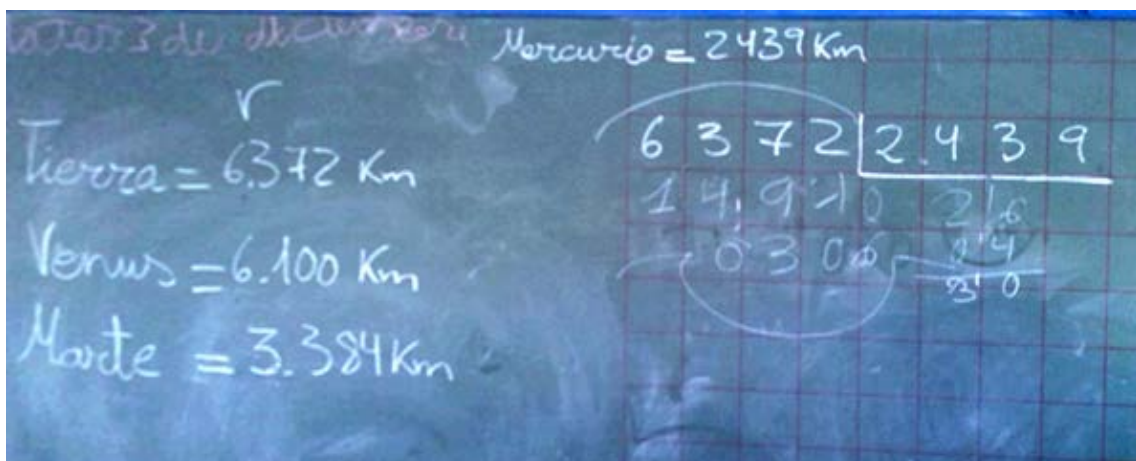 Mercurio = 2439 Km
r
Tierra = 6.372 Km
Venus = 6.100 Km
Marte = 3.384 Km
6 3 7 2 2.4 3 9
1 4,9 4 0 2,6
0 3 0 6 0,4
3,0